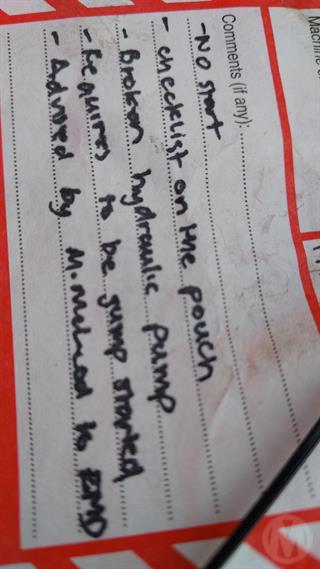 Machine
Comments (if any):
- No start
- checklist on the pouch
- Broken hydraulic pump
- Requires to be jump started
- Advised by M. to
M